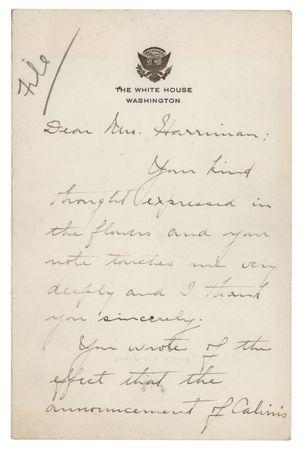 File
THE WHITE HOUSE
WASHINGTON
Dear Mrs. Harriman:
Your kind
thought expressed in
the flowers and your
note touches me very
deeply and I thank
you sincerely.
You wrote of the
effect that the
announcement of Calvin's